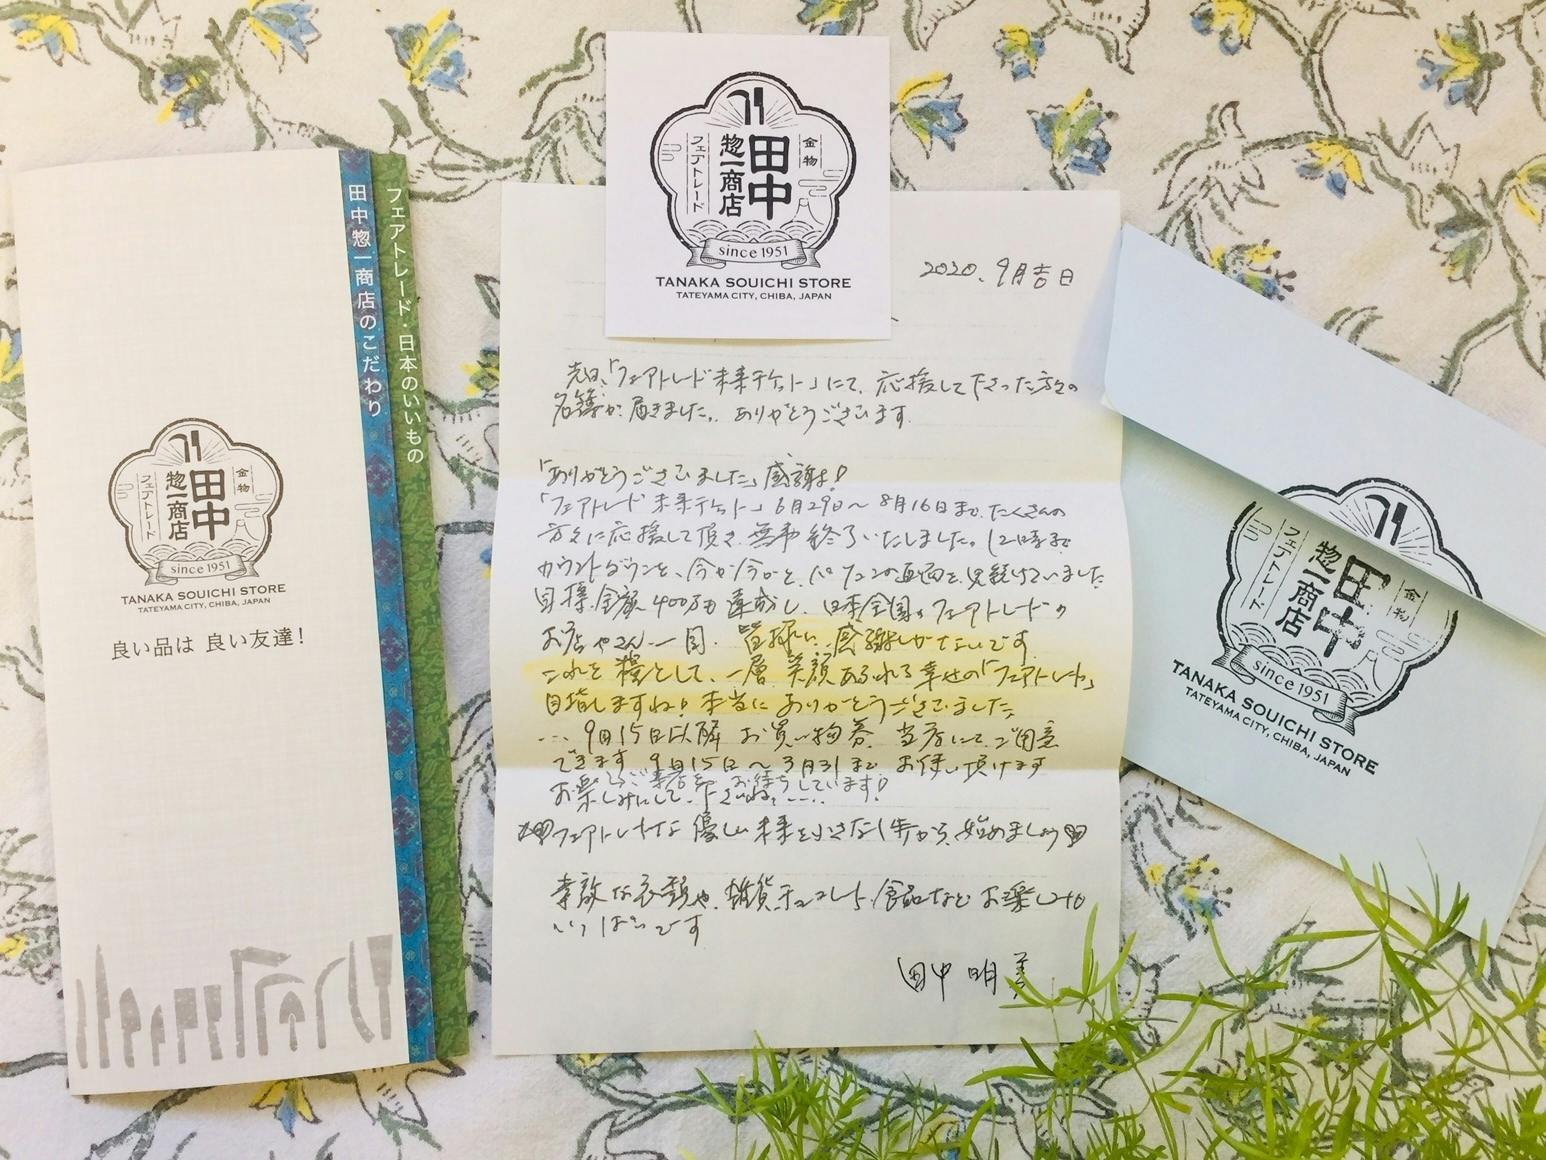 フェアトレード・日本のいいもの
田中惣一商店のこだわり
金物
田中
惣一商店
フェアトレード
since 1951
TANAKA SOUICHI STORE
TATEYAMA CITY, CHIBA, JAPAN
良い品は 良い友達!
金物
田中
惣一商店
フェアトレード
since 1951
TANAKA SOUICHI STORE
TATEYAMA CITY, CHIBA, JAPAN
2020.9月吉日
先日、「フェアトレード未来チケット」にて、応援して下さった方々の
名簿が、届きました。ありがとうございます。
「ありがとうございました」感謝!
「フェアトレード未来チケット」6月29日〜8月16日まで、たくさんの
方々に応援して頂き、無事終了いたしました。12時まで
カウントダウンを、今か今かと、パソコンの画面を見続けていました
目標金額400万も達成し、日本全国のフェアトレードの
お店やさん一同、皆様に、感謝しかないです。
これを糧として、一層笑顔あふれる幸せの「フェアトレード」
目指しますね!本当にありがとうございました。
… 9月15日以降 お買い物券、当店にてご用意
できます。9月15日〜3月31まで お使い頂けます
お楽しみにして、下さいね、……
ご来店を お待ちしています!
フェアトレードな優しい未来を小さな1歩から、始めましょう
素敵な衣類や、雑貨、チョコレート、食品など お楽しみ
いっぱいです
田中 明美
金物
田中
惣一商店
フェアトレード
since 1951
TANAKA SOUICHI STORE
TATEYAMA CITY, CHIBA, JAPAN